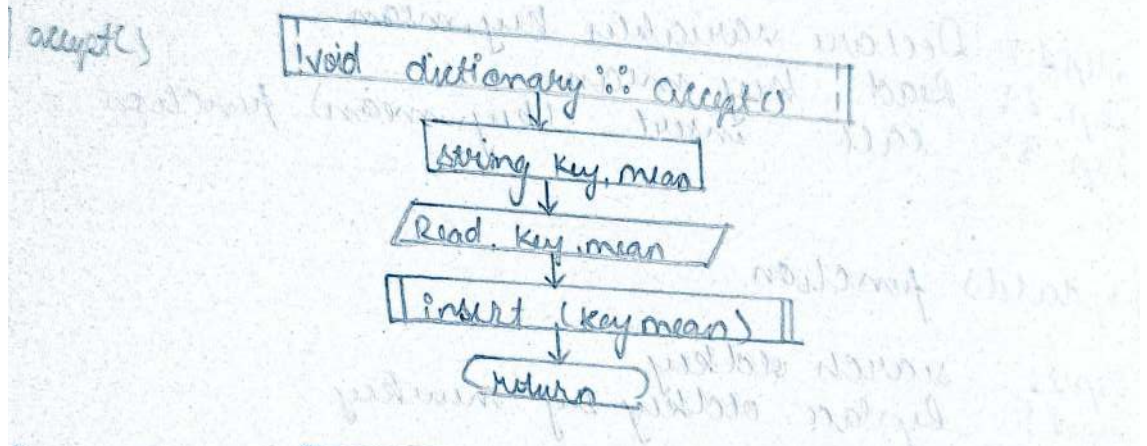 accept()
void dictionary :: accept()
string key, mean
Read key, mean
insert (key mean)
return